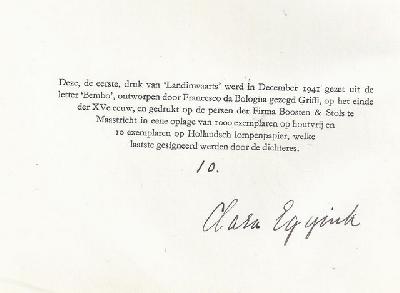 Deze, de eerste, druk van 'Landinwaarts' werd in December 1941 gezet uit de
letter 'Bembo', ontworpen door Francesco da Bologna gezegd Griffi, op het einde
der XVe eeuw, en gedrukt op de persen der Firma Boosten & Stols te
Maastricht in eene oplage van 1000 exemplaren op houtvrij en
10 exemplaren op Hollandsch lompenpapier, welke
laatste gesigneerd werden door de dichteres.
10.
Clara Eggink